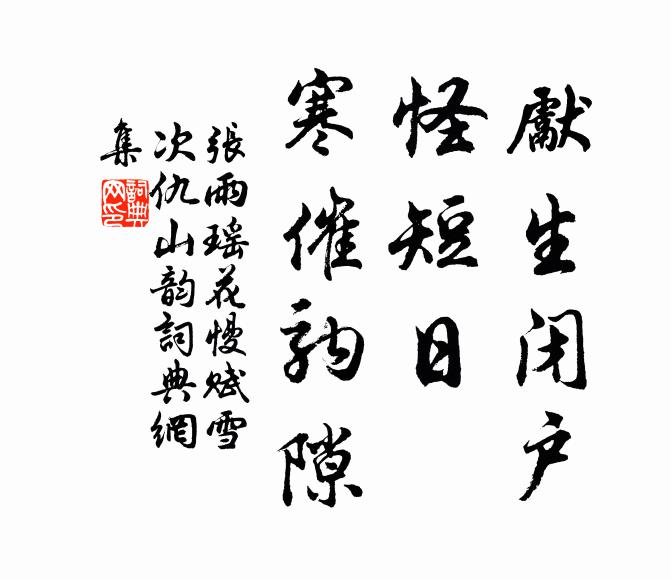 獻生闭户
怪短日
寒催駒隙
張雨瑶花慢赋雪
次仇山韵詞典網
集
詞典
网印